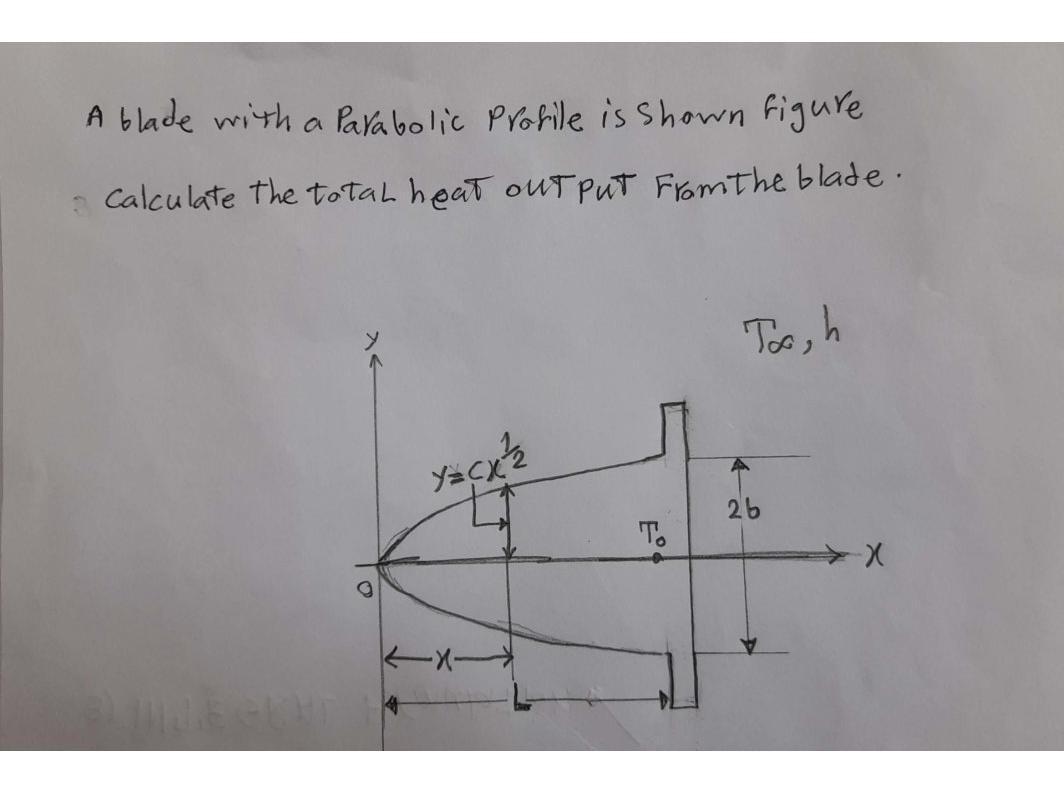 A blade with a Parabolic Profile is shown figure
Calculate the total heat output From the blade.
T∞, h
y
y=cx^1/2
2b
T₀
x
0
x
L